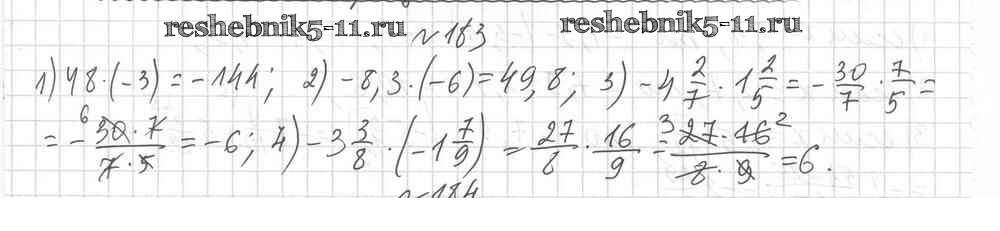 reshebnik5-11.ru № 183 reshebnik5-11.ru
1) 48·(-3) = -144; 2) -8,3·(-6) = 49,8; 3) -4 2/7 · 1 2/5 = - 30/7 · 7/5 =
= - 6 30·7/7·5 = -6; 4) -3 3/8 · (-1 7/9) = 27/8 · 16/9 = 3 27·16 2/8·9 = 6.
№ 184